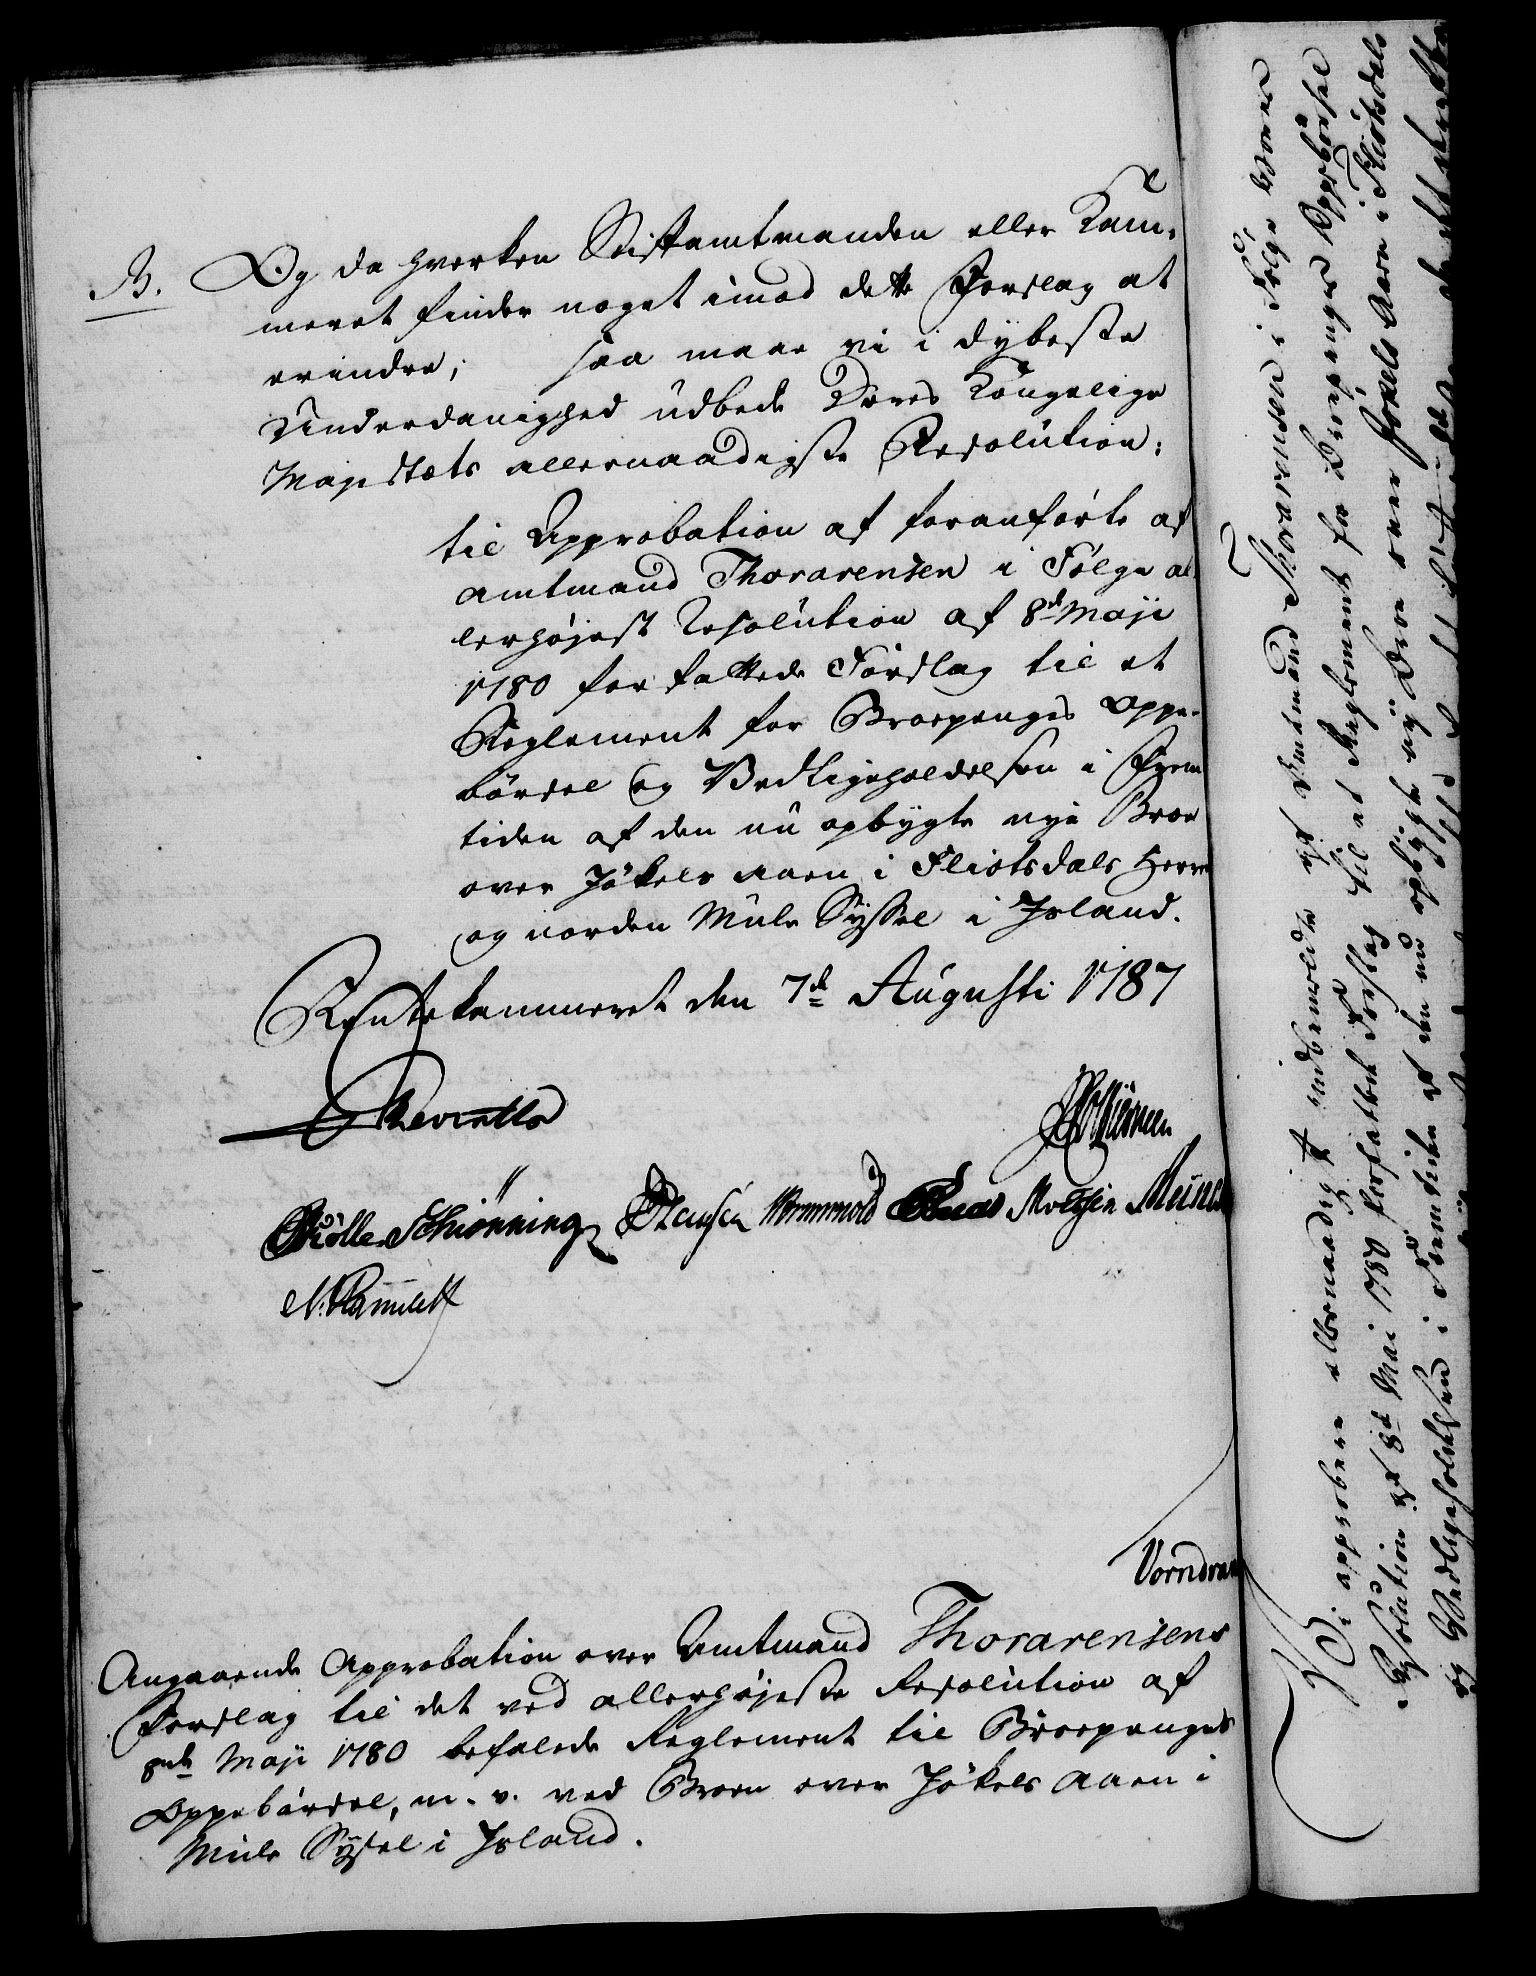 B. Og da hverken Stiftamtmanden eller Kam-
meret finder noget imod dette Forslag at
erindre; saa maae vi i dybeste
Underdanighed udbede Deres Kongelige
Majestæts allernaadigste Resolution:
til Approbation af foranførte af
Amtmand Thorarensen i Følge al-
lerhøjest Resolution af 8de Maji
1780 forfattede Forslag til et
Reglement for Broepenges Oppe-
børsel og Vedligeholdelsen i Frem
tiden af den nu opbygte nye Broe
over Jökels Aaen i Fliotsdals Herre
og norden Mule Syssel i Island.
Rentekammeret den 7de Augusti 1787
Reventlo
Schiønning Hansen Wormskiold Müns
Vorndran
Angaaende Approbation over Amtmand Thorarensens
Forslag til det ved allerhøjeste Resolution af
8de Maji 1780 befalede Reglement til Broepenges
Oppebørsel, m. v. ved Broen over Jökels Aaen i
Mule Syssel i Island.
Vi approbere allernaadigst indbemeldte af Amtmand Thorarensen i Følge Vores
Resolution af 8de Mai 1780 forfattet Forslag til et Reglement for Broepenges Oppebørsel
og Vedligeholdelsen i Fremtiden af den nu opbygte nye Broe over Jökels Aaen i Fliotsdals